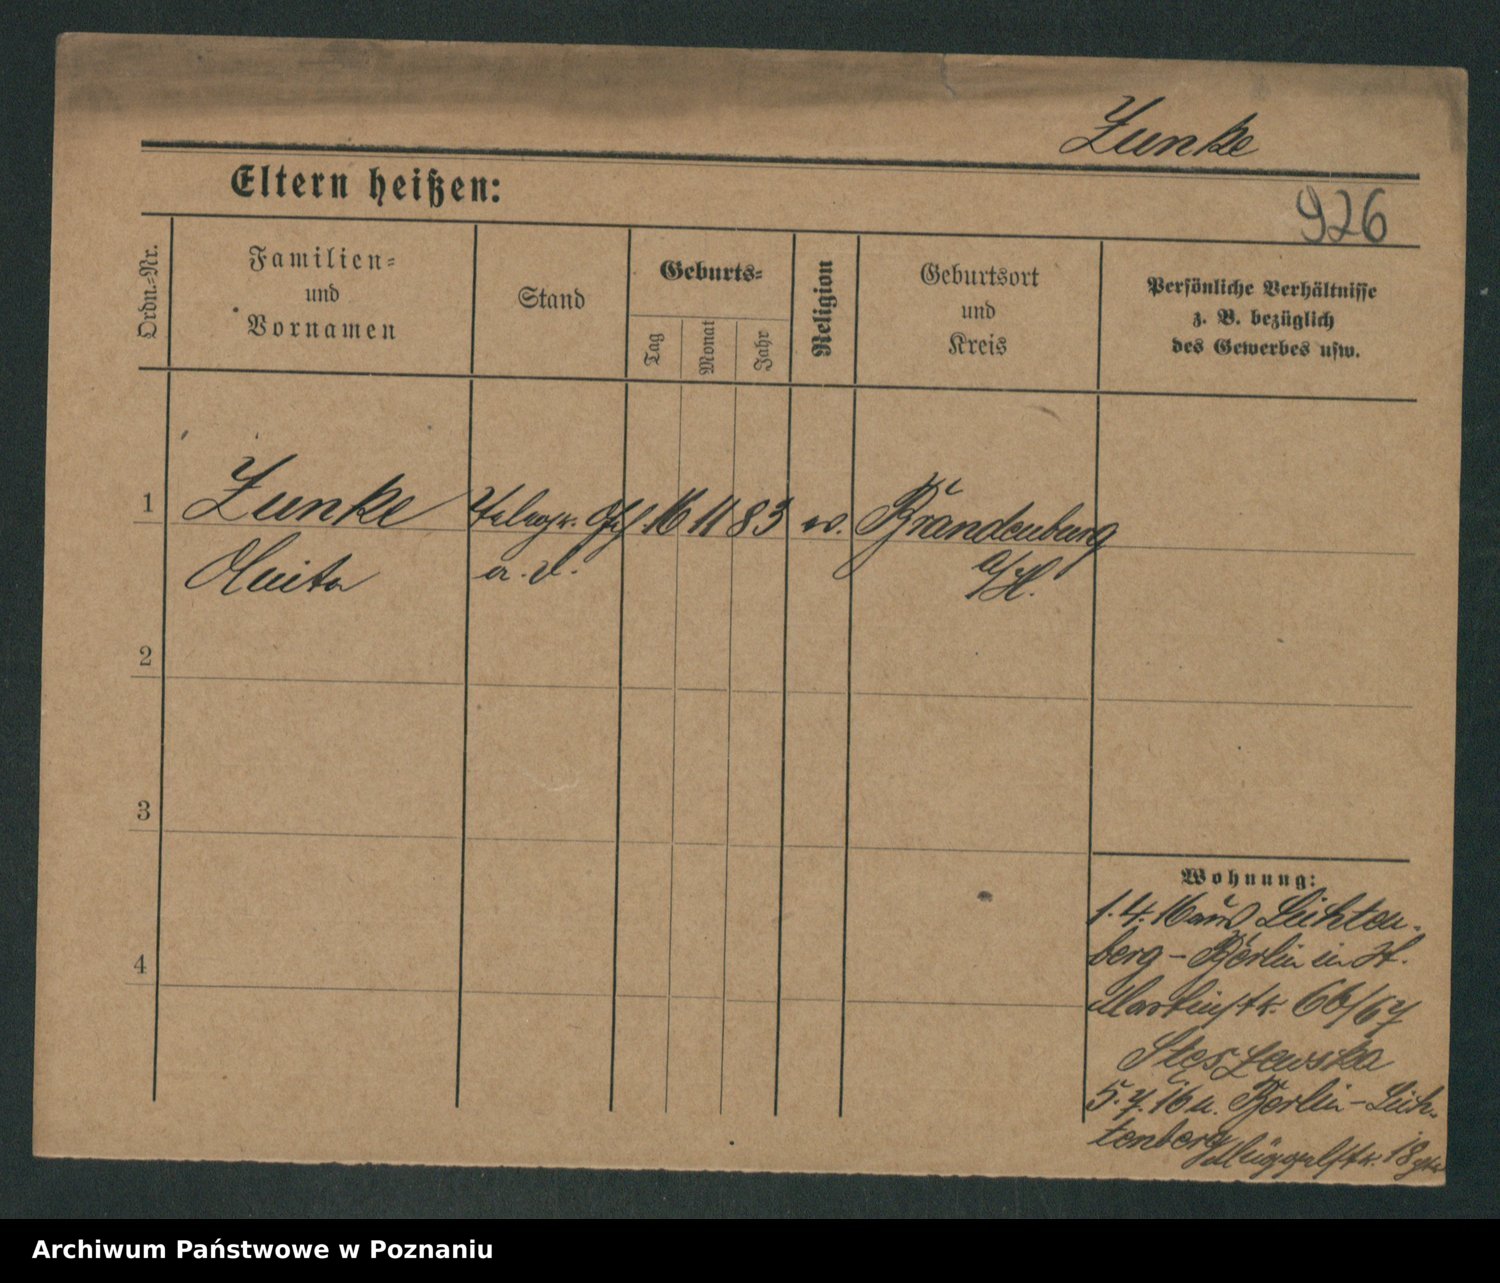 Zunke
Eltern heißen:
926
Ordn.-Nr.
Familien-
und
Vornamen
Stand
Geburts-
Tag
Monat
Jahr
Religion
Geburtsort
und
Kreis
Persönliche Verhältnisse
z. B. bezüglich
des Gewerbes usw.
1
Zunke Telegr. 16 11 83 ev. Brandenburg
a. D. a/H.
2
3
4
Wohnung:
1. 4. 16 aus Lichten-
berg - Berlin in St.
Martinstr. 66/67
Stęszewska
5. 7. 16 n. Berlin - Lich-
tenberg
Müggelstr. 18
Archiwum Państwowe w Poznaniu